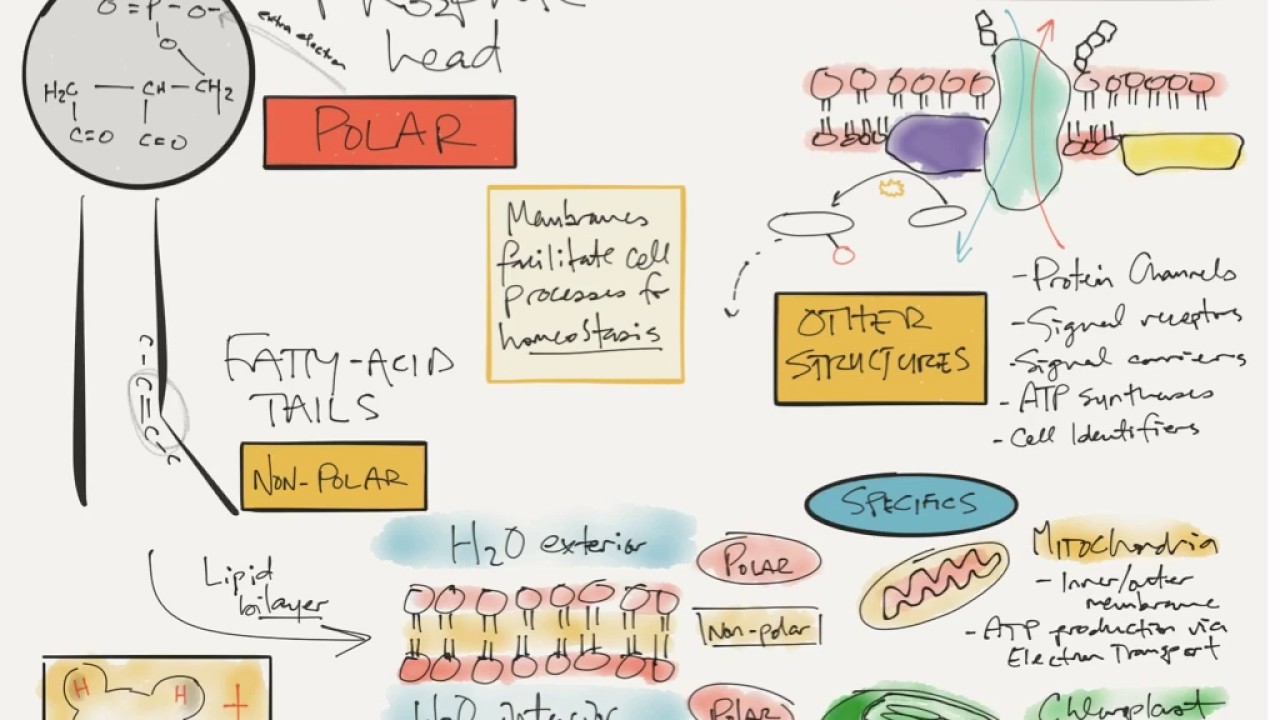 Phosphate
head
O=P-O-
extra electron
O
H₂C — CH — CH₂
C=O C=O
POLAR
Membranes
facilitate cell
processes for
homeostasis
C-C=C-C
FATTY-ACID
TAILS
NON-POLAR
OTHER
STRUCTURES
- Protein Channels
- Signal receptors
- Signal carriers
- ATP syntheses
- Cell Identifiers
Lipid
bilayer
H₂O exterior
POLAR
Non-polar
H₂O interior
POLAR
SPECIFICS
Mitochondria
- Inner/outer
membrane
- ATP production via
Electron Transport
Chloroplast
H H +